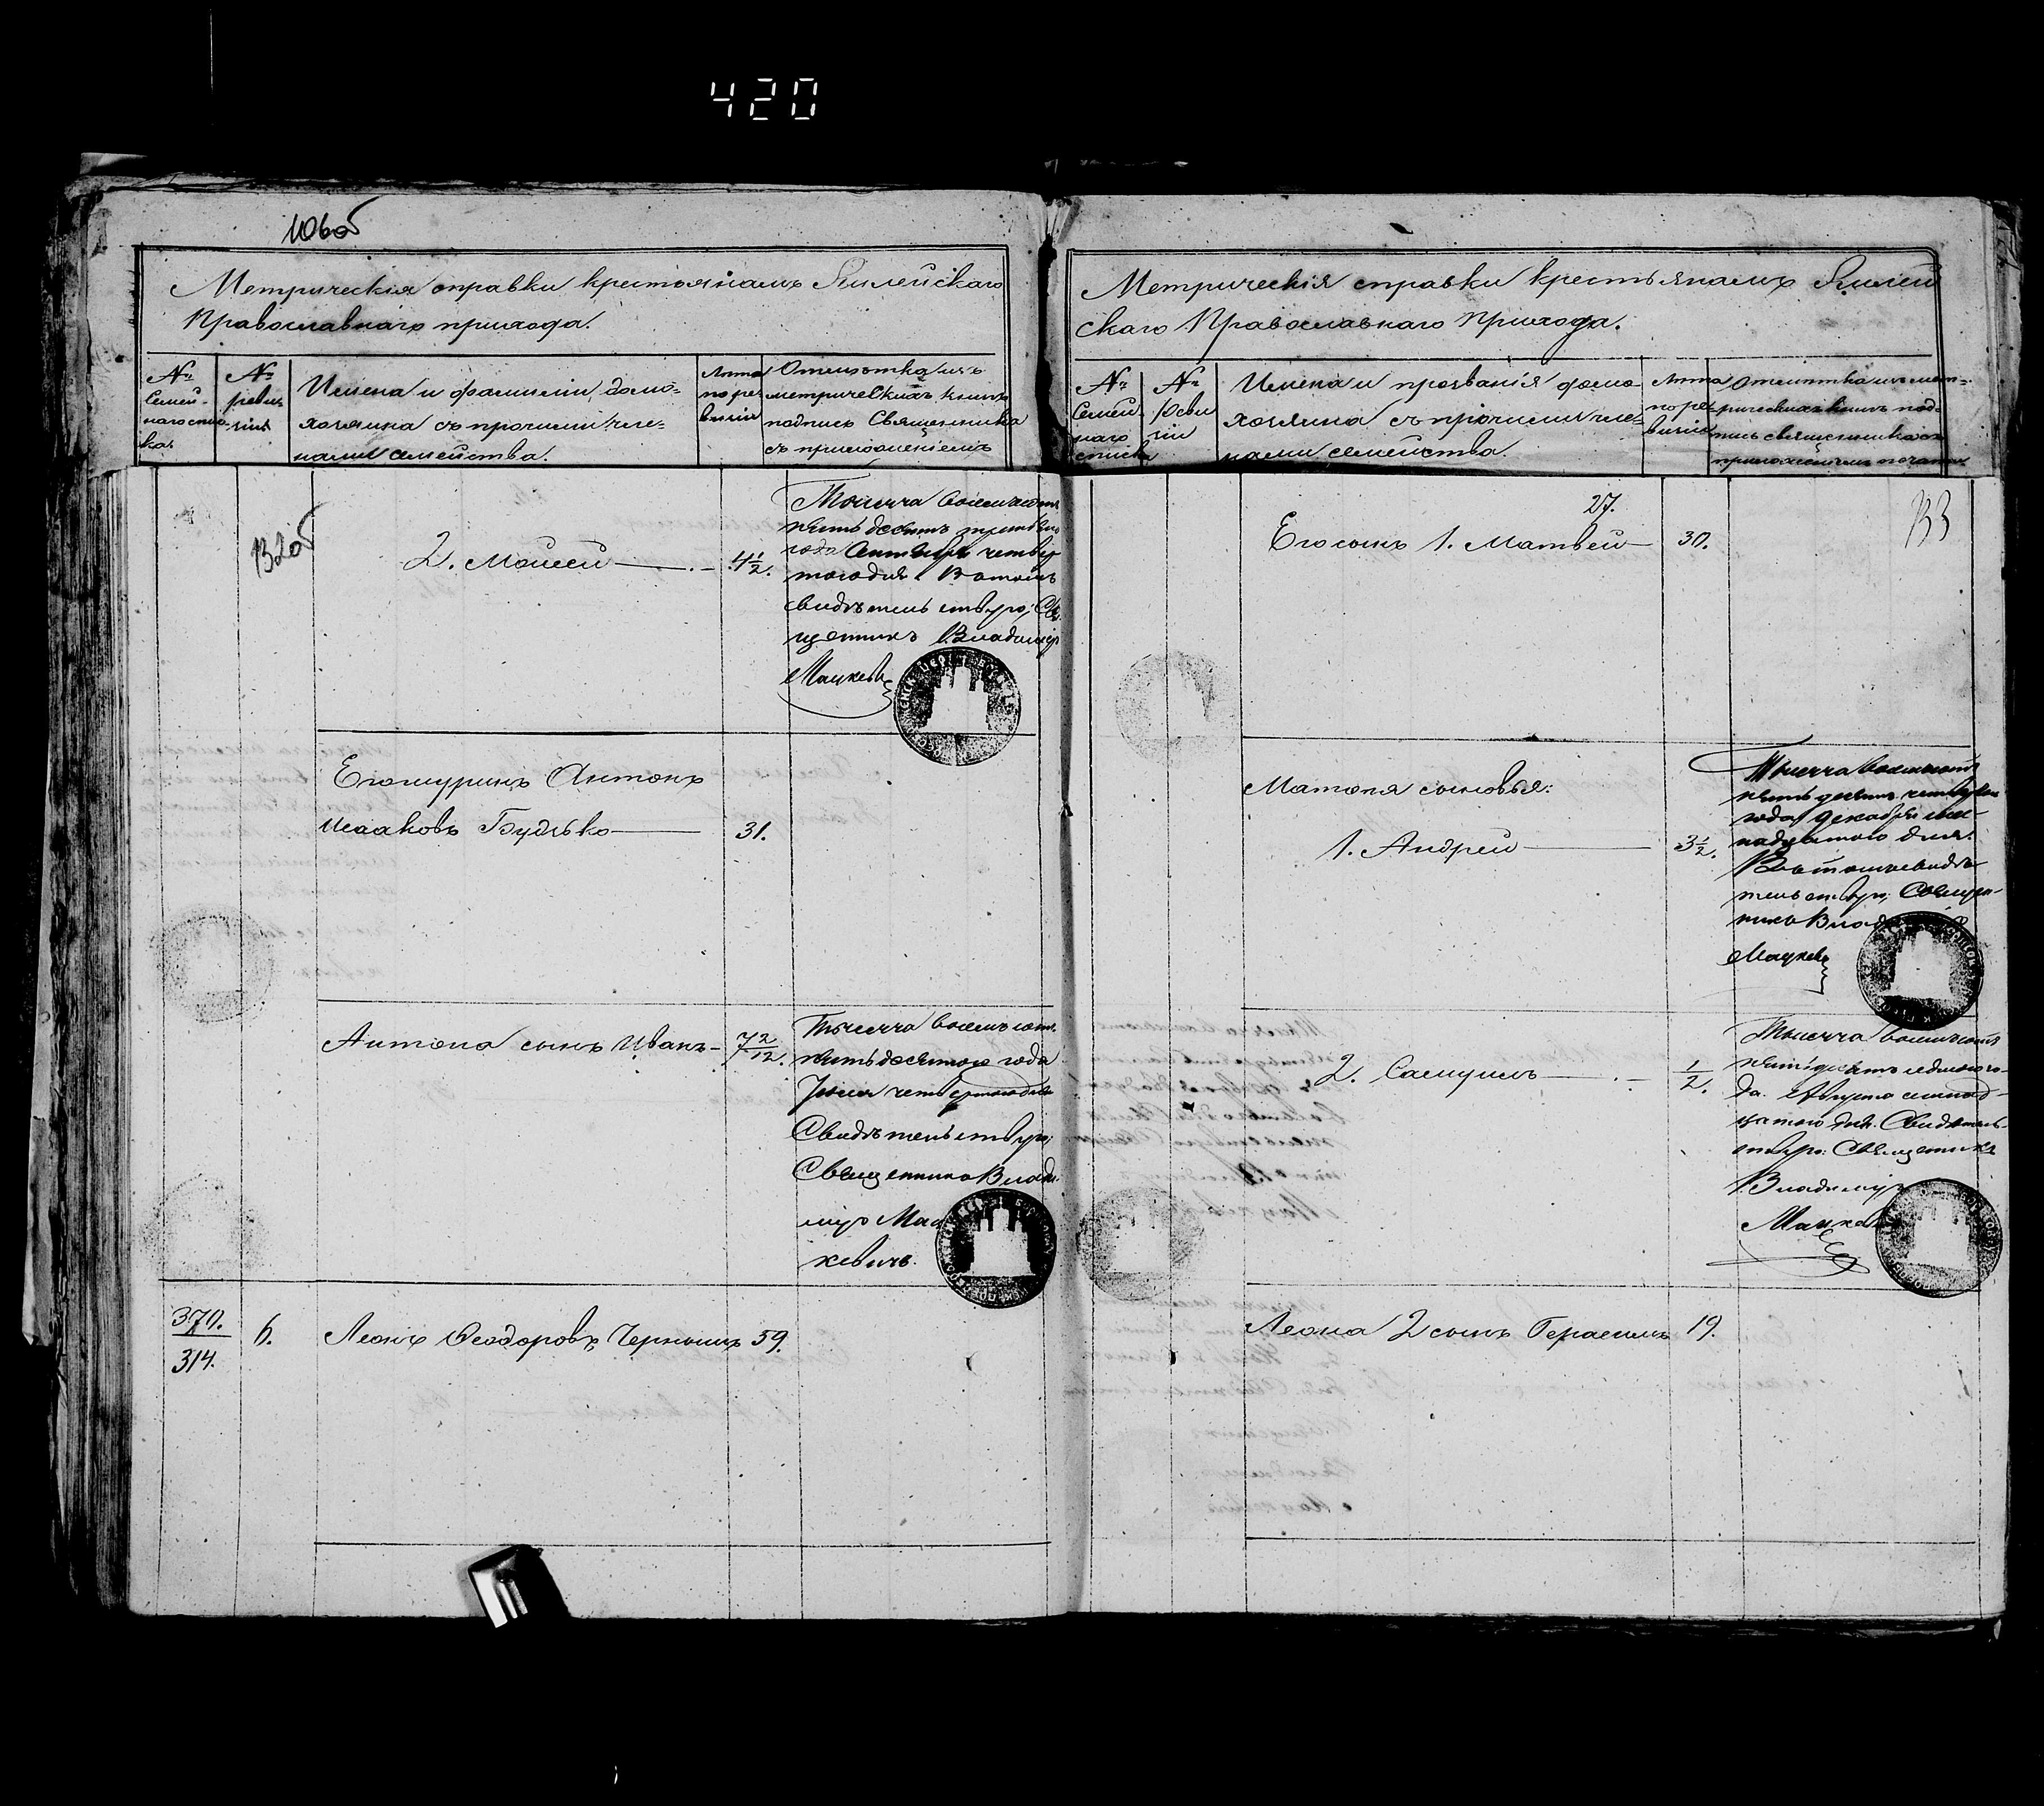 420
106об
Метрическія справки крестьянамъ Якилейскаго
Православнаго прихода.
№ Семейнаго списка
№ ревизіи
Имена и фамиліи домо-
хозяина съ прочими чле-
нами семейства.
Лѣта по ревизіи
Отмѣтка изъ
метрическихъ книгъ
подпись Священника
съ приложеніемъ
132об
2. Моисей 4 1/2.
Тысяча восемьсотъ
пятьдесятъ третьяго
года Сентября четвер-
таго дня. Въ томъ
свидѣтельствую; Свя-
щенникъ Владиміръ
Мацкевич
Его шуринъ Антонъ
Исааковъ Будзько 31.
Антона сынъ Иванъ 7 2/12.
Тысяча восемьсотъ
пятьдесятаго года
Іюня четвертаго дня
Свидѣтельствую:
Священникъ Влади-
міръ Мац
кевичъ.
370.
314.
6. Леонъ Ѳеодоровъ Чернышъ 59.
Метрическія справки крестьянамъ Якилей
скаго Православнаго Прихода.
№ Семей
наго
списка
№ Реви
зіи
Имена и прозванія домо-
хозяина съ прочими чле-
нами семейства.
Лѣта
по ре-
визіи
Отмѣтка изъ мет-
рическихъ книгъ под-
пись священника съ
приложеніемъ печати
133
27.
Его сынъ 1. Матвей 30.
Матвея сыновья:
1. Андрей 3 1/2.
Тысяча восемьсотъ
пятьдесятъ четвертаго
года декабря
надцатаго дня.
Въ томъ свидѣ-
тельствую, Священ-
никъ Влад
Мацкев
2. Самуилъ 1/2.
Тысяча восемьсотъ
пятьдесятъ седьмого го-
да. Августа семнад-
цатаго дня. Свидѣтель-
ствую: Священникъ
Владиміръ
Мацкев
Леона 2 сынъ Герасимъ 19.